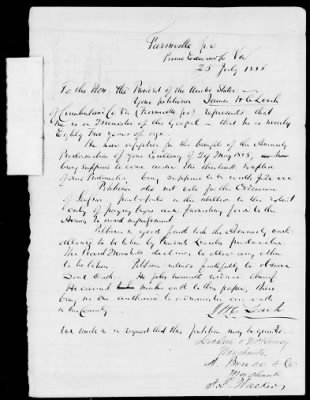 Farmville po
Prince Edward Co Va
25 July 1865
To the Hon. the President of the United States
Your petitioner James H C Leach
of Cumberland Co Va (Farmville po) represents that
he is a Minister of the Gospel - that he is nearly
Eighty two years of age.
He now applies for the benefit of the Amnesty
Proclamation of your Excellency of 29 May 1865,
being supposed to come under the thirteenth exception
of said Proclamation being supposed to be worth $20,000
Petitioner did not vote for the Ordinance
of Secession, participated in the rebellion to the extent
only of paying taxes and furnishing food to the
Army to avoid impressment
Petitioner in good faith took the Amnesty oath
allowed to be taken by President Lincoln's proclamation
The Provost Marshall declined to allow any other
to be taken. Petitioner intends faithfully to observe
said oath. He asks honorable executive clemency
He cannot make oath to this paper, there
being no one authorized to administer an oath
in this County.
J H C Leach
We unite in a request that this petition may be granted
Merchants
A. Bondurant & Co
Merchants